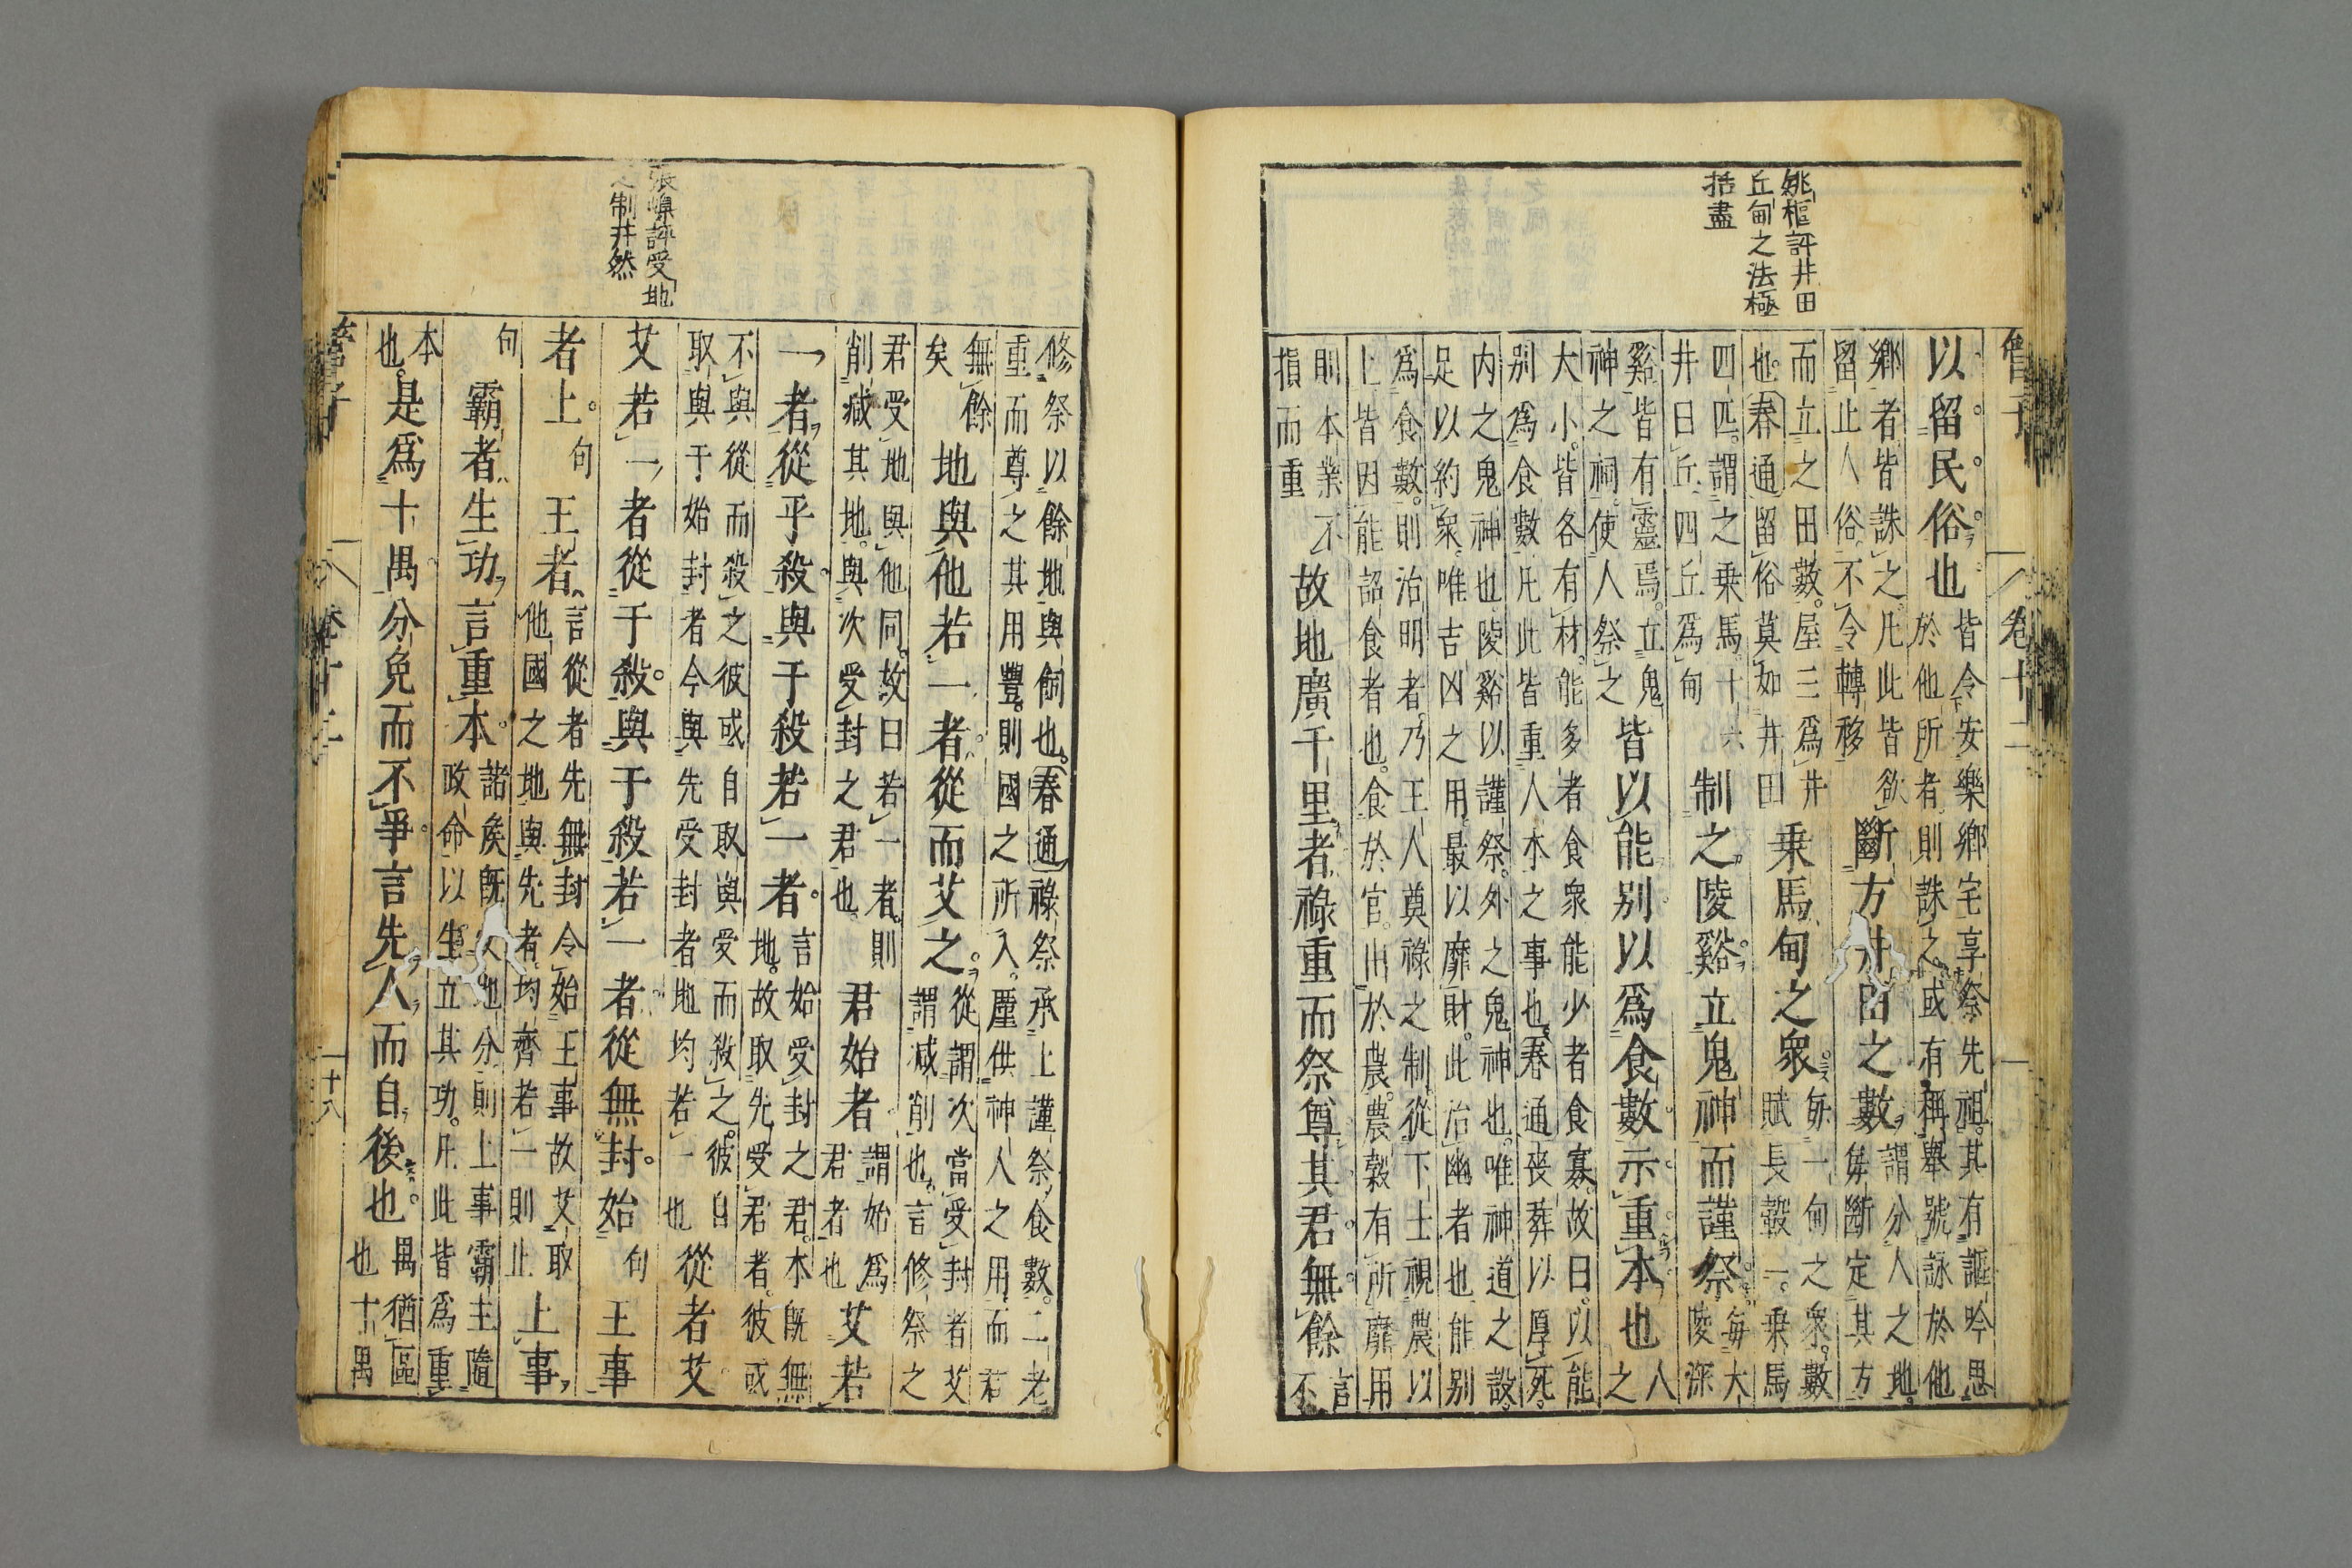 姚樞評井田
丘甸之法極
括盡
管子 卷十二
以留民俗也
皆令安樂鄉宅享祭先祖其有謳吟思
於他所者則誅之或有稱舉號詠於他
鄉者皆誅之凡此皆欲
留止人俗不令轉移
斷方井田之數
謂分人之地
每斷定其方
而立之田數屋三爲井
也春通留俗莫如井田
乘馬甸之衆
每一甸之衆數
賦長轂一乘馬
四匹謂之乘馬十六
井曰丘四丘爲甸
制之陵谿立鬼神而謹祭
每大
陵深
谿皆有靈焉立鬼
神之祠使人祭之
皆以能别以爲食數示重本也
人
之
大小皆各有材能多者食衆能少者食寡故曰以能
别爲食數凡此皆重人本之事也春通喪葬以厚死
内之鬼神也陵谿以謹祭外之鬼神也唯神道之設
足以約衆唯吉凶之用最以靡財此治幽者也能别
爲食數則治明者乃王人奠祿之制從下士視農以
上皆因能詔食者也食於官出於農農穀有所靡用
則本業不
指而重
故地廣千里者祿重而祭尊其君無餘
言
不
張嵊評受地
之制井然
修祭以餘地與飼也春通祿祭承上謹祭食數二者
重而尊之其用豐則國之所入廑供神人之用而君
無餘
矣
地與他若一者從而艾之
從謂次當受封者艾
謂減削也言修祭之
君受地與他同故曰若一者則
削減其地與次受封之君也
君始者
謂始爲
君者也
艾若
一者從乎殺與于殺若一者
言始受封之君本既無
地故取先受君者彼或
不與從而殺之彼或自取與受而殺之彼自
取與于始封者今與先受封者地均若一也
從者艾
艾若一者從于殺與于殺若一者從無封始
句
王事
者上
句
王者
言從者先無封令始王事故艾取
他國之地與先者均齊若一則止
上事
句
霸者生功言重本
諸侯既地分則上事霸主隨
政命以生立其功凡此皆爲重
本
也
是爲十禺分免而不爭言先人而自後也
禺猶區
也十禺
管子 卷十二 十八